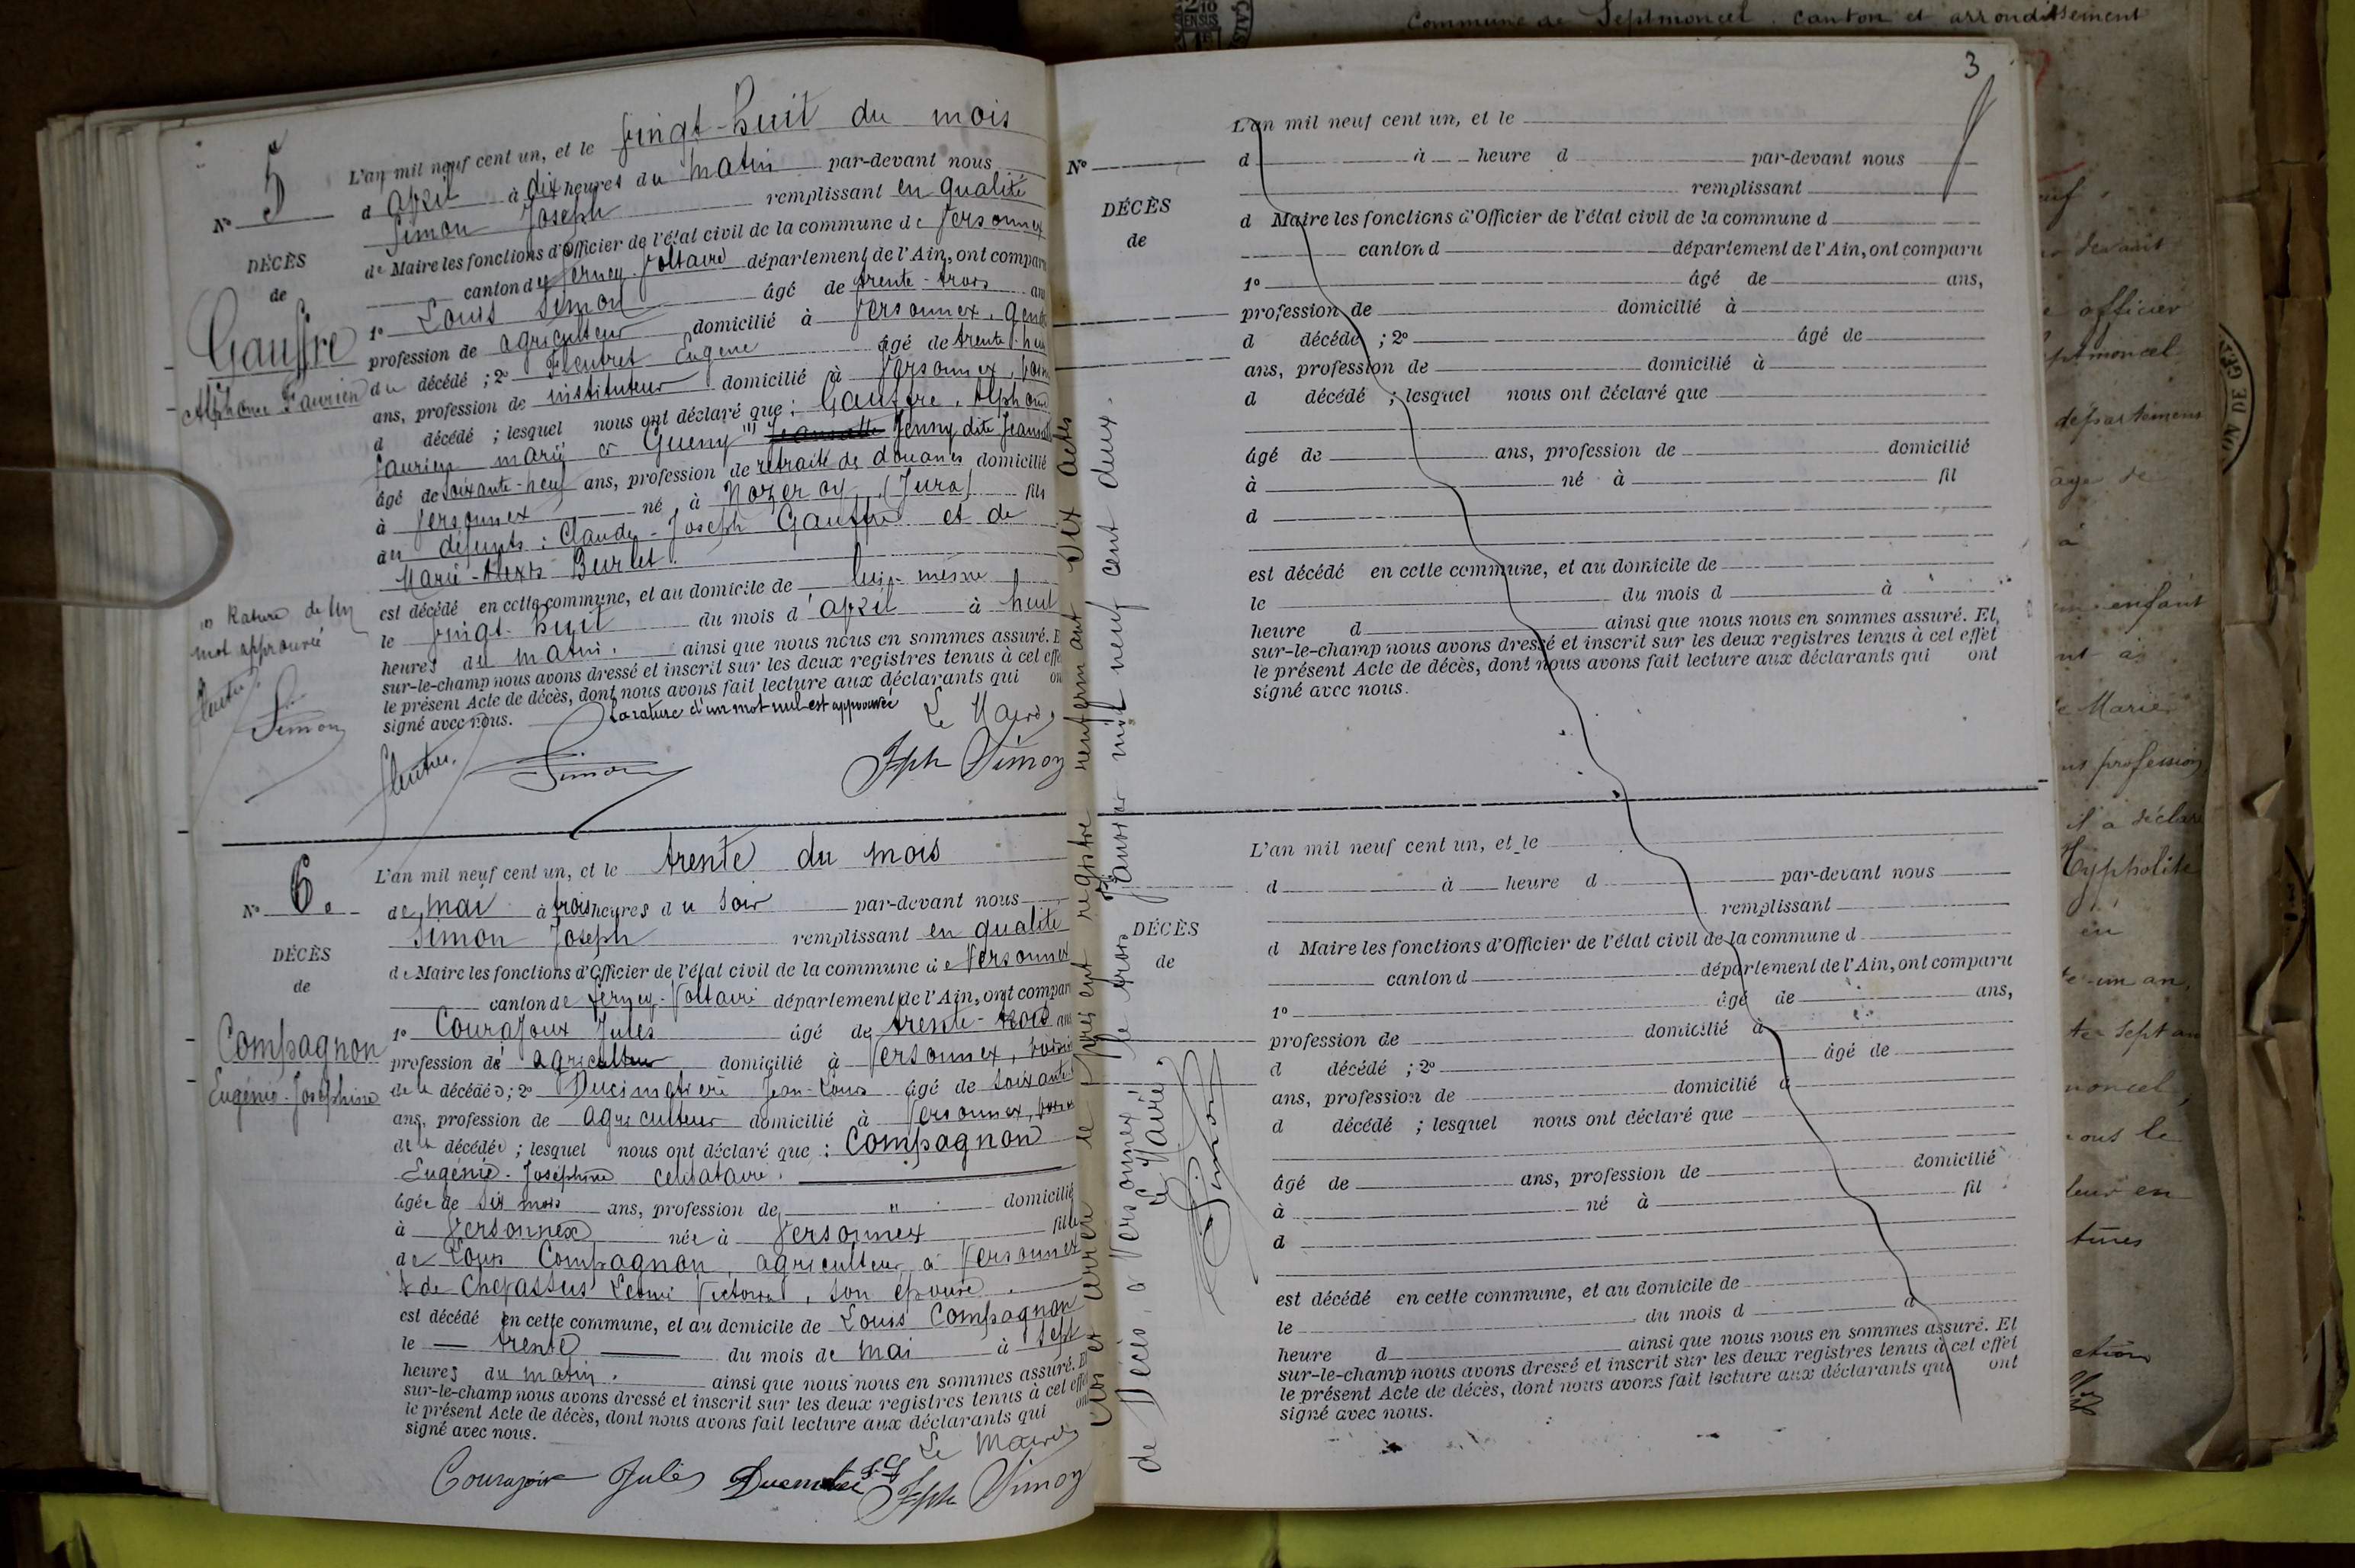 N° 5
DÉCÈS
de
Gauffre
Alphonse Faurien
L'an mil neuf cent un, et le vingt-huit du mois
d'avril à dix heures du matin par-devant nous
Simon Joseph remplissant en qualité
de Maire les fonctions d'Officier de l'état civil de la commune de Versonnex
canton de Ferney-Voltaire département de l'Ain, ont comparu
1° Louis Simon âgé de trente-trois ans
profession de agriculteur domicilié à Versonnex,
du décédé ; 2° Fleutret Eugène âgé de trente-
ans, profession de instituteur domicilié à Versonnex,
d décédé ; lesquel nous ont déclaré que : Gauffre, Alphonse
Faurien marié à Gueny (1) Jeannette Jenny dite
âgé de soixante-neuf ans, profession de retraité des douanes domicilié
à Versonnex né à Nozeroy (Jura) fils
des défunts : Claude-Joseph Gauffre et de
Marie-Alexis Burlet.
est décédé en cette commune, et au domicile de lui-même
le vingt-huit du mois d'avril à huit
heures du matin. ainsi que nous nous en sommes assuré. Et
sur-le-champ nous avons dressé et inscrit sur les deux registres tenus à cet effet
le présent Acte de décès, dont nous avons fait lecture aux déclarants qui ont
signé avec nous. La rature d'un mot nul est approuvée
Le Maire,
Simon
Jph Simon
(1) Rature de un
mot approuvée
Simon
N° 6.
DÉCÈS
de
Compagnon
Eugénie-Joséphine
L'an mil neuf cent un, et le trente du mois
de mai à trois heures du soir par-devant nous
Simon Joseph remplissant en qualité
de Maire les fonctions d'Officier de l'état civil de la commune de Versonnex
canton de Ferney-Voltaire département de l'Ain, ont comparu
1° Courajoux Jules âgé de trente-trois ans
profession de agriculteur domicilié à Versonnex, voisin
de la décédée ; 2° Ducimetière Jean-Louis âgé de soixante
ans, profession de agriculteur domicilié à Versonnex, voisin
de la décédée ; lesquel nous ont déclaré que : Compagnon
Eugénie-Joséphine célibataire.
âgée de six mois ans, profession de " domicilié
à Versonnex née à Versonnex fille
de Louis Compagnon, agriculteur à Versonnex
& de Chevassus Léonie Victorine, son épouse.
est décédé en cette commune, et au domicile de Louis Compagnon
le trente du mois de mai à sept
heures du matin. ainsi que nous nous en sommes assuré. Et
sur-le-champ nous avons dressé et inscrit sur les deux registres tenus à cet effet
le présent Acte de décès, dont nous avons fait lecture aux déclarants qui ont
signé avec nous.
Le Maire
Courajoux Jules
Jph Simon
Clos et arrêté le présent registre renfermant six actes
de Décès, à Versonnex le trois janvier mil neuf cent deux.
Le Maire,
Simon
3
N°
DÉCÈS
de
L'an mil neuf cent un, et le
d à heure d par-devant nous
remplissant
d Maire les fonctions d'Officier de l'état civil de la commune d
canton d département de l'Ain, ont comparu
1° âgé de ans,
profession de domicilié à
d décédé ; 2° âgé de
ans, profession de domicilié à
d décédé ; lesquel nous ont déclaré que
âgé de ans, profession de domicilié
à né à fil
d
est décédé en cette commune, et au domicile de
le du mois d à
heure d ainsi que nous nous en sommes assuré. Et,
sur-le-champ nous avons dressé et inscrit sur les deux registres tenus à cet effet
le présent Acte de décès, dont nous avons fait lecture aux déclarants qui ont
signé avec nous.
DÉCÈS
de
L'an mil neuf cent un, et le
d à heure d par-devant nous
remplissant
d Maire les fonctions d'Officier de l'état civil de la commune d
canton d département de l'Ain, ont comparu
1° âgé de ans,
profession de domicilié à
d décédé ; 2° âgé de
ans, profession de domicilié à
d décédé ; lesquel nous ont déclaré que
âgé de ans, profession de domicilié
à né à fil
d
est décédé en cette commune, et au domicile de
le du mois d à
heure d ainsi que nous nous en sommes assuré. Et
sur-le-champ nous avons dressé et inscrit sur les deux registres tenus à cet effet
le présent Acte de décès, dont nous avons fait lecture aux déclarants qui ont
signé avec nous.
Commune de Septmoncel canton et arrondissement
devant
officier
département
âge de
à
enfant
Marie
profession
il a déclaré
Hyppolite
un an,
sept ans